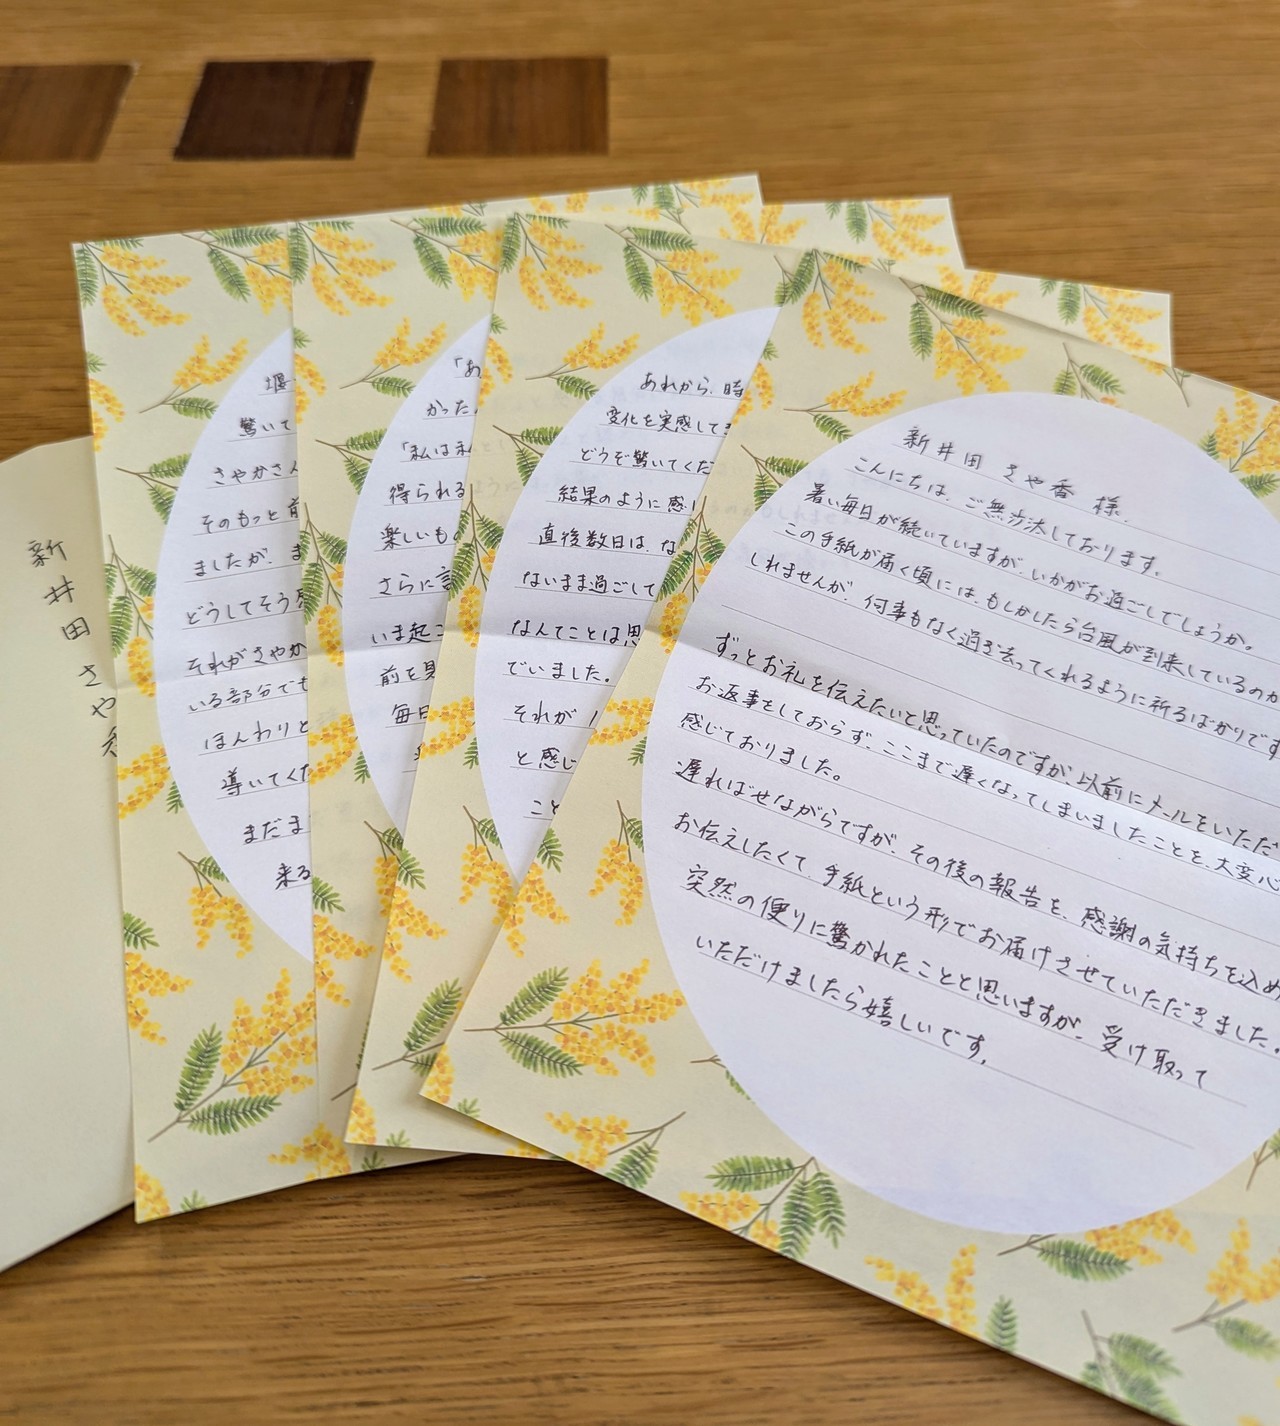 新井田 さや香 様.
こんにちは、ご無沙汰しております。
暑い毎日が続いていますが、いかがお過ごしでしょうか。
この手紙が届く頃には、もしかしたら台風が到来しているのか
しれませんが、何事もなく過ぎ去ってくれるように祈るばかりです
ずっとお礼を伝えたいと思っていたのですが、以前にメールをいただ
お返事をしておらず、ここまで遅くなってしまいましたことを、大変心
感じておりました。
遅ればせながらですが、その後の報告を、感謝の気持ちを込め
お伝えしたくて、手紙という形でお届けさせていただきました。
突然の便りに驚かれたことと思いますが、受け取って
いただけましたら嬉しいです。
あれから、時
変化を実感して
どうぞ驚いてくだ
結果のように感
直後数日は、な
ないまま過ごして
なんてことは思
でいました。
それが
と感じ
こと
「あ
かった
「私は私
得られる
楽しいも
さらに
いま起こ
前を見
毎日
堰
驚いて
さやかさん
そのもっと前
ましたが、ま
どうしてそう
それがさやか
いる部分でも
ほんわりと
導いてくだ
まだま
来る
新井田 さや